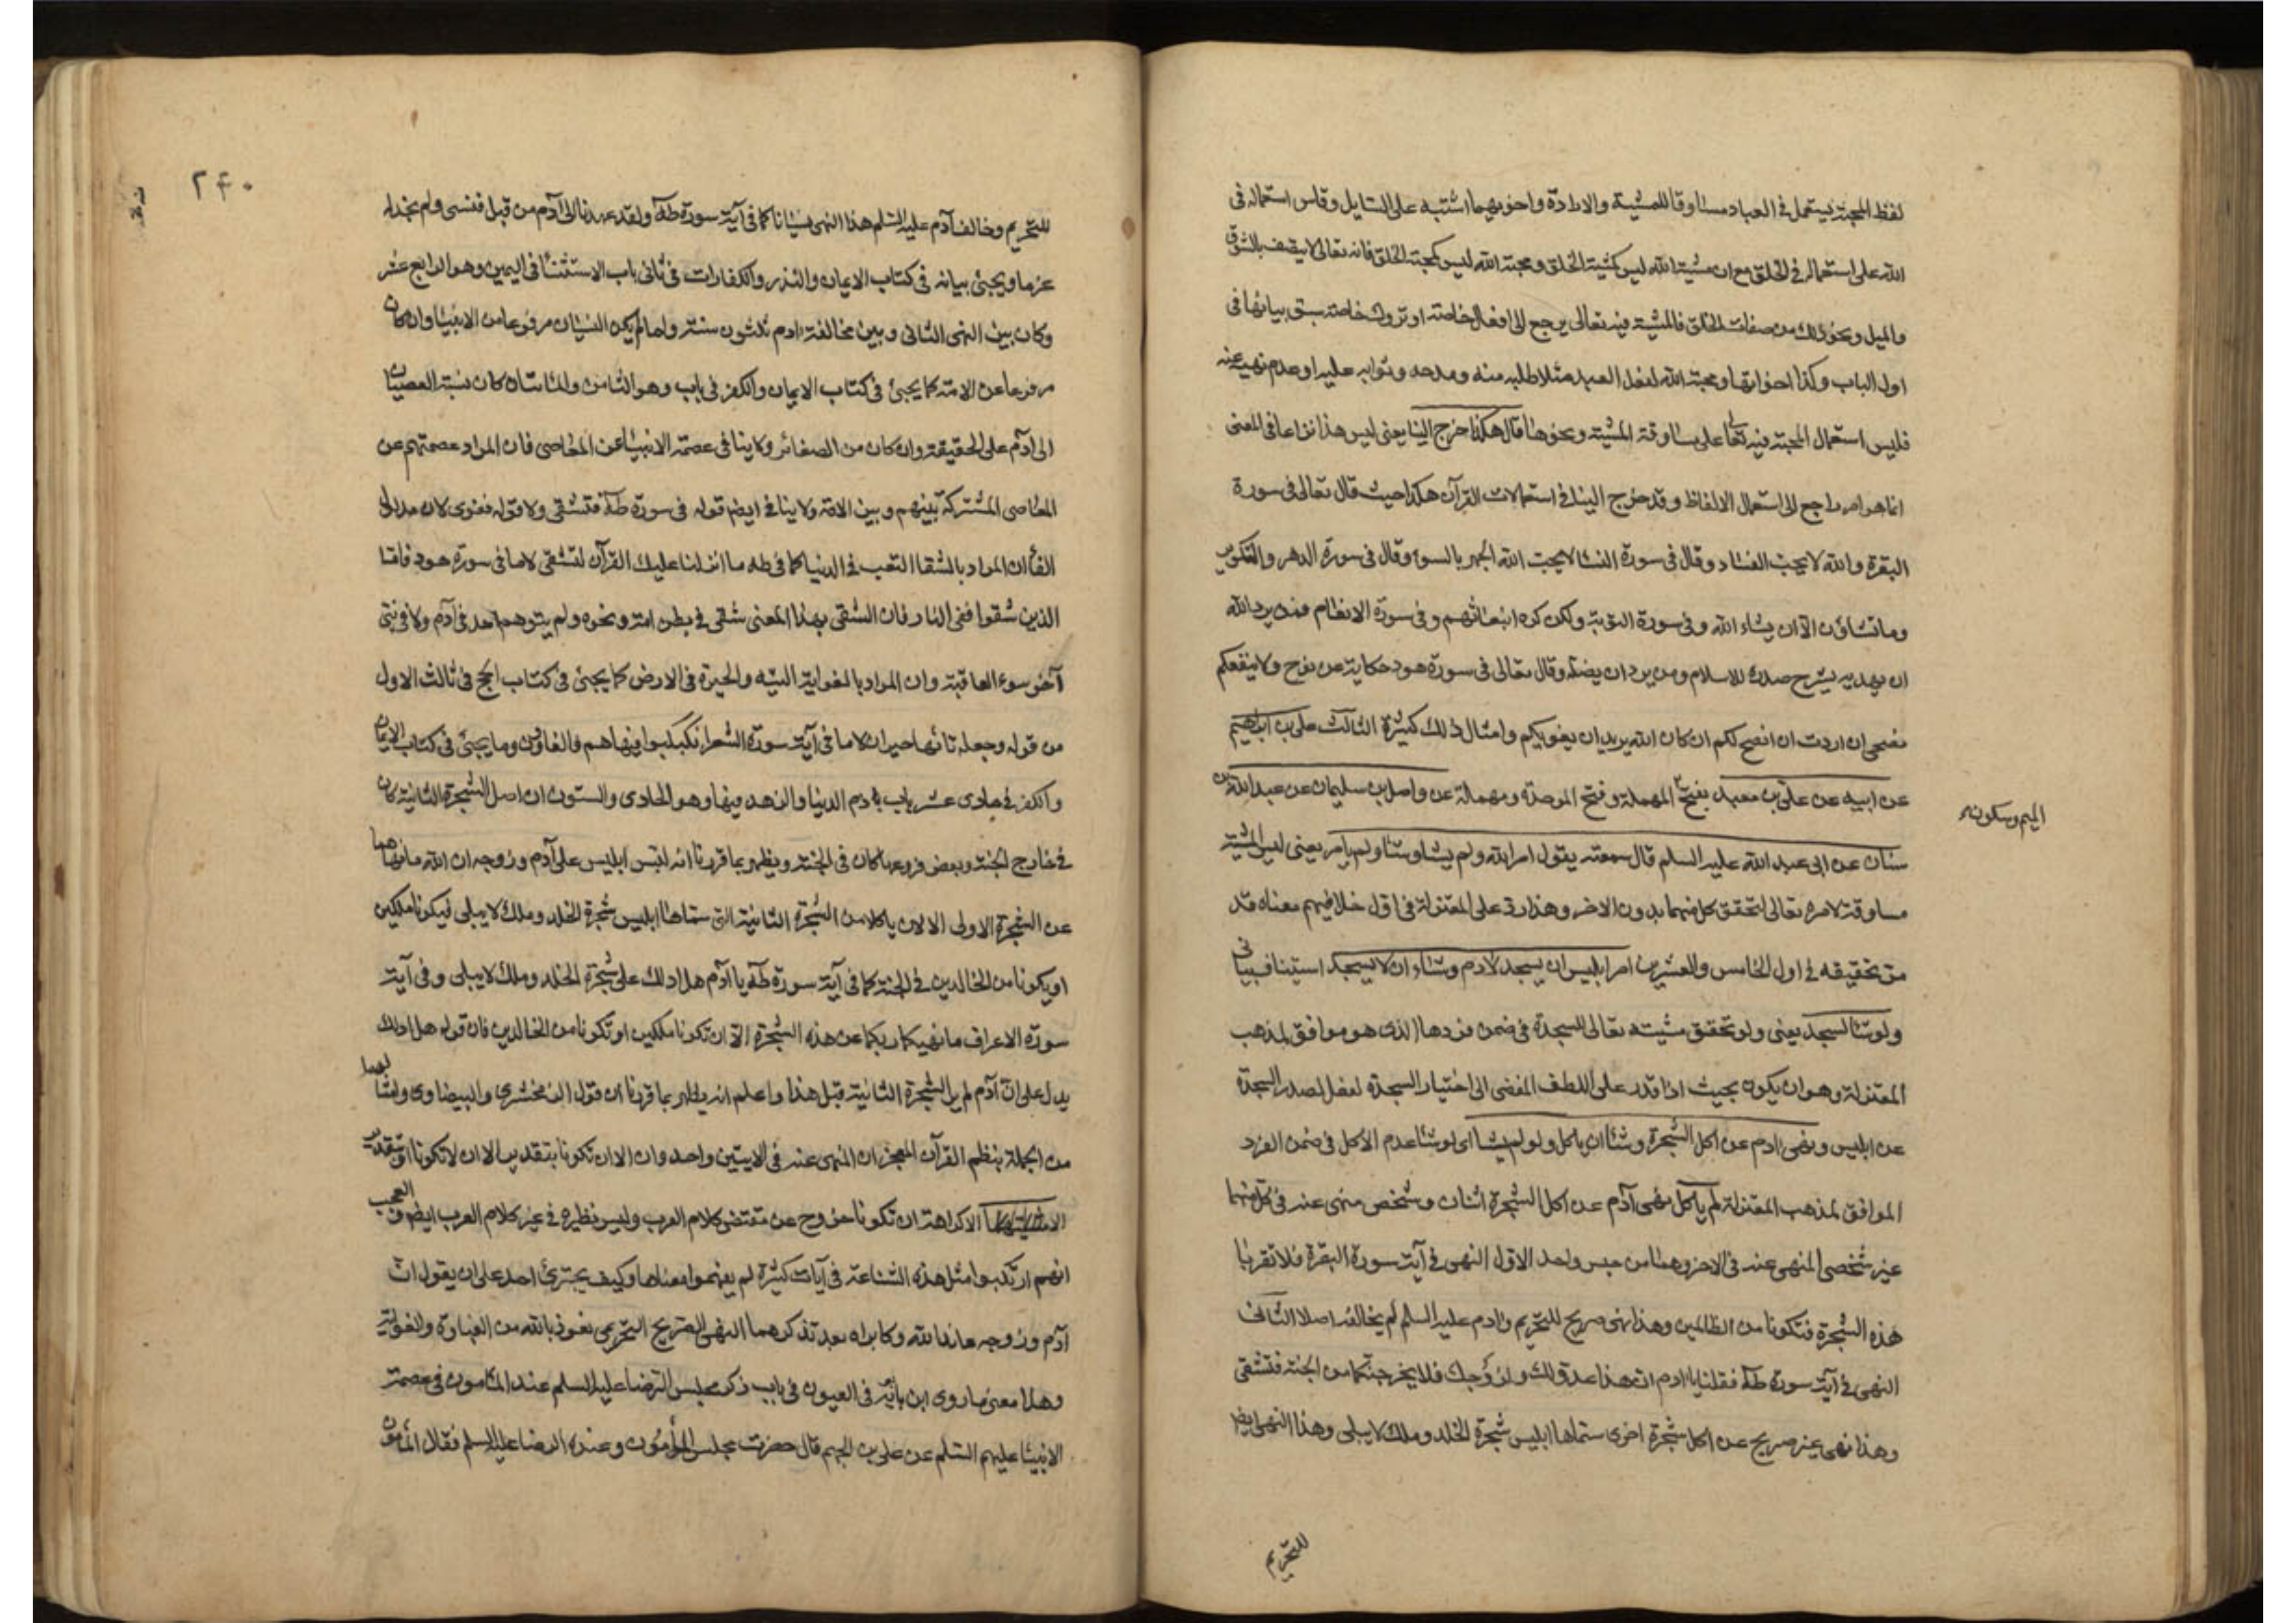 لفظ المحبة يستعمل في العباد مساوقا للمشية والارادة واخويهما اشتبه على السايل وقاس استعماله في
الله على استعماله في الخلق مع ان مشية الله ليس كمشية الخلق ومحبة الله ليس كمحبة الخلق فانه تعالى لا يتصف بالشوق
والميل ونحو ذلك من صفات الخلق فالمشية فيه تعالى يرجع الى افعال خاصة او تروك خاصة سبق بيانها في
اول الباب وكذا اخواتها ومحبة الله لفعل العبد مثلا طلبه منه ومدحه وثوابه عليه او عدم نهيه عنه
فليس استعمال المحبة فيه تعا على مساوقة المشية ونحوها قال هكذا خرج الينا يعني ليس هذا نزاعا في المعنى
انما هو امر راجع الى استعمال الالفاظ وقد خرج الينا في استعمالات القرآن هكذا حيث قال تعالى في سورة
البقرة والله لا يحب الفساد وقال في سورة النسا لا يحب الله الجهر بالسوء وقال في سورة الدهر والتكوير
وما تشاؤن الا ان يشاء الله وفي سورة التوبة ولكن كره الله انبعاثهم وفي سورة الانعام فمن يرد الله
ان يهديه يشرح صدره للاسلام ومن يرد ان يضله وقال تعالى في سورة هود حكاية عن نوح ولا ينفعكم
نصحي ان اردت ان انصح لكم ان كان الله يريد ان يغويكم وامثال ذلك كثيرة الثالث علي بن ابراهيم
عن ابيه عن علي بن معبد بفتح المهملة وفتح الموحدة ومهملة عن واصل بن سليمان عن عبد الله بن
الميم وسكون
سنان عن ابي عبد الله عليه السلم قال سمعته يقول امر الله ولم يشا وشا ولم يامر يعني ليس المشية
مساوقة لامره تعالى لتحقق كل منهما بدون الاخر وهذا رد على المعتزلة في اول خلافيهم معناه قد
مر تحقيقه في اول الخامس والعشرين امر ابليس ان يسجد لادم وشاء ان لا يسجد استيناف بياني
ولو شا لسجد يعني ولو تحقق مشيته تعالى للسجدة في ضمن فردها الذي هو موافق لمذهب
المعتزلة وهو ان يكون بحيث اذا قدر على اللطف المفضي الى اختيار السجدة لفعل لصدر السجدة
عن ابليس ونهى ادم عن اكل الشجرة وشا ان ياكل ولو لم يشا اى لو شا عدم الاكل في ضمن الفرد
الموافق لمذهب المعتزلة لم ياكل نهى آدم عن اكل الشجرة اثنان وشخص منهى عنه في كل منهما
غير شخص المنهى عنه في الاخر وهما من جنس واحد الاول النهي في آية سورة البقرة فلا تقربا
هذه الشجرة فتكونا من الظالمين وهذا نهى صريح للتحريم وادم عليه السلم لم يخالفه اصلا الثاني
النهى في آية سورة طه فقلنا يا ادم ان هذا عدو لك ولزوجك فلا يخرجنكما من الجنة فتشقى
وهذا نهى غير صريح عن اكل شجرة اخرى سماها ابليس شجرة الخلد وملك لا يبلى وهذا النهى ايضا
للتحريم
۲۴۰
للتحريم وخالف آدم عليه السلم هذا النهى نسيانا كما في آية سورة طه ولقد عهدنا الى آدم من قبل فنسي ولم نجد له
عزما ويجيئ بيانه في كتاب الايمان والنذر والكفارات في ثاني باب الاستثنا في اليمين وهو الرابع عشر
وكان بين النهى الثاني وبين مخالفة ادم ثلثون سنة ولما لم يكن النسيان مرفوعا من الانبيا وان كان
مرفوعا عن الامة كما يجيئ في كتاب الايمان والكفر في باب وهو الثامن والمائتان كان نسبة العصيان
الى آدم على الحقيقة وان كان من الصغائر ولا ينافي عصمة الانبيا عن المعاصي فان المراد عصمتهم عن
المعاصي المشتركة بينهم وبين الامة ولا ينافي ايضا قوله في سورة طه فتشقى ولا قوله فغوى لان مدلول
الفا ان المراد بالشقا التعب في الدنيا كما في طه ما انزلنا عليك القرآن لتشقى لا ما في سورة هود فاما
الذين شقوا ففي النار فان الشقى بهذا المعنى شقى في بطن امه ونحوه ولم يتوهم احد في آدم ولا في نبي
آخر سوء العاقبة وان المراد بالغواية التيه والحيرة في الارض كما يجيئ في كتاب الحج في ثالث الاول
من قوله وجعله تائها حيران لا ما في آية سورة الشعرا فكبكبوا فيها هم والغاوون وما يجيئ في كتاب الايمان
والكفر في حادى عشر باب ذم الدنيا والزهد فيها وهو الحادى والستون ان اصل الشجرة الثانية كان
في خارج الجنة وبعض فروعها كان في الجنة ويظهر بما قررنا انه لبس ابليس على آدم وزوجه ان الله ما نهاهما
عن الشجرة الاولى الا لان ياكلا من الشجرة الثانية التي سماها ابليس شجرة الخلد وملك لا يبلى فيكونا ملكين
او يكونا من الخالدين في الجنة كما في آية سورة طه يا آدم هل ادلك على شجرة الخلد وملك لا يبلى وفي آية
سورة الاعراف ما نهيكما ربكما عن هذه الشجرة الا ان تكونا ملكين او تكونا من الخالدين فان قوله هل ادلك
يدل على ان آدم لم ير الشجرة الثانية قبل هذا واعلم انه يظهر بما قررنا ان قول الزمخشرى والبيضاوى وامثالهما
من الجهلة بنظم القرآن المعجز ان المنهى عنه في الايتين واحد وان الا ان تكونا بتقدير الا ان لا تكونا او بتقدير
الا كراهة ان تكونا خروج عن مقتضى كلام العرب وليس نظيره في غير كلام العرب ايضا والعجب
انهم ارتكبوا مثل هذه الشناعة في آيات كثيرة لم يفهموا معناها وكيف يجترئ احد على ان يقول ان
آدم وزوجه عاندا لله وكابراه بعد تذكرهما النهى الصريح التحريمى نعوذ بالله من الغباوة والغواية
وهذا معنى ما روى ابن بابويه في العيون في باب ذكر مجلس الرضا عليه السلم عند المامون في عصمة
الانبيا عليهم السلم عن علي بن الجهم قال حضرت مجلس المأمون وعنده الرضا عليه السلم فقال المأمون